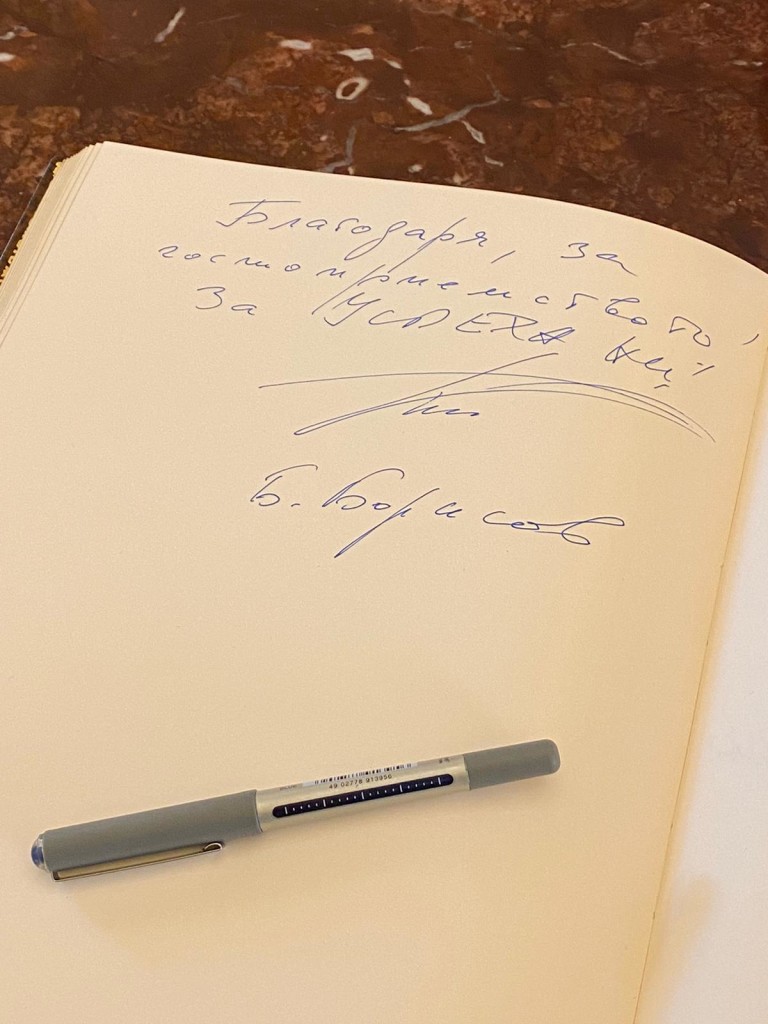 Благодаря, за
гостоприемството,
За УСПЕХА НИ!
Б. Борисов
49 02778 913950